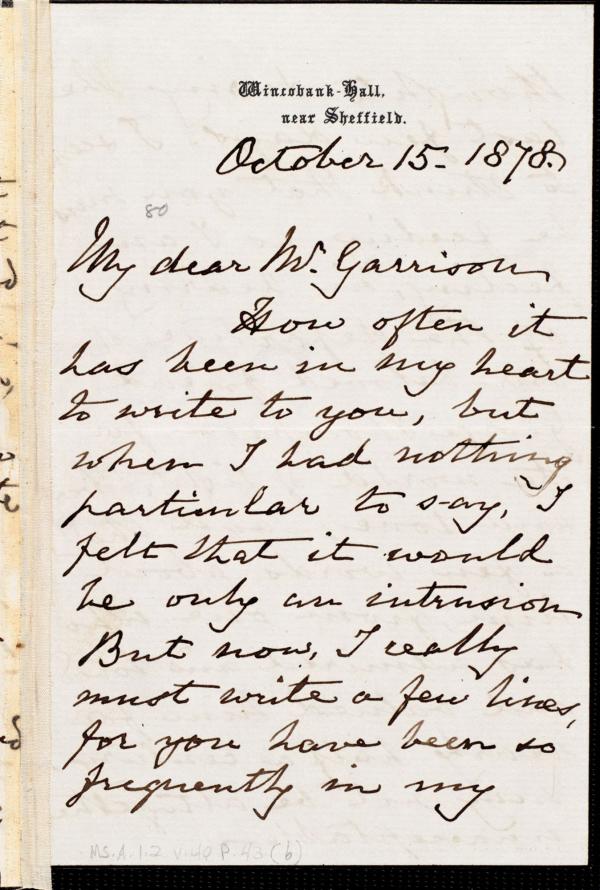 Wincobank-Hall,
near Sheffield.
October 15. 1878.
80
My dear Mr. Garrison
How often it
has been in my heart
to write to you, but
when I had nothing
particular to say, I
felt that it would
be only an intrusion
But now, I really
must write a few lines,
for you have been so
frequently in my
MS.A.1.2 V.40 P.43 (b)